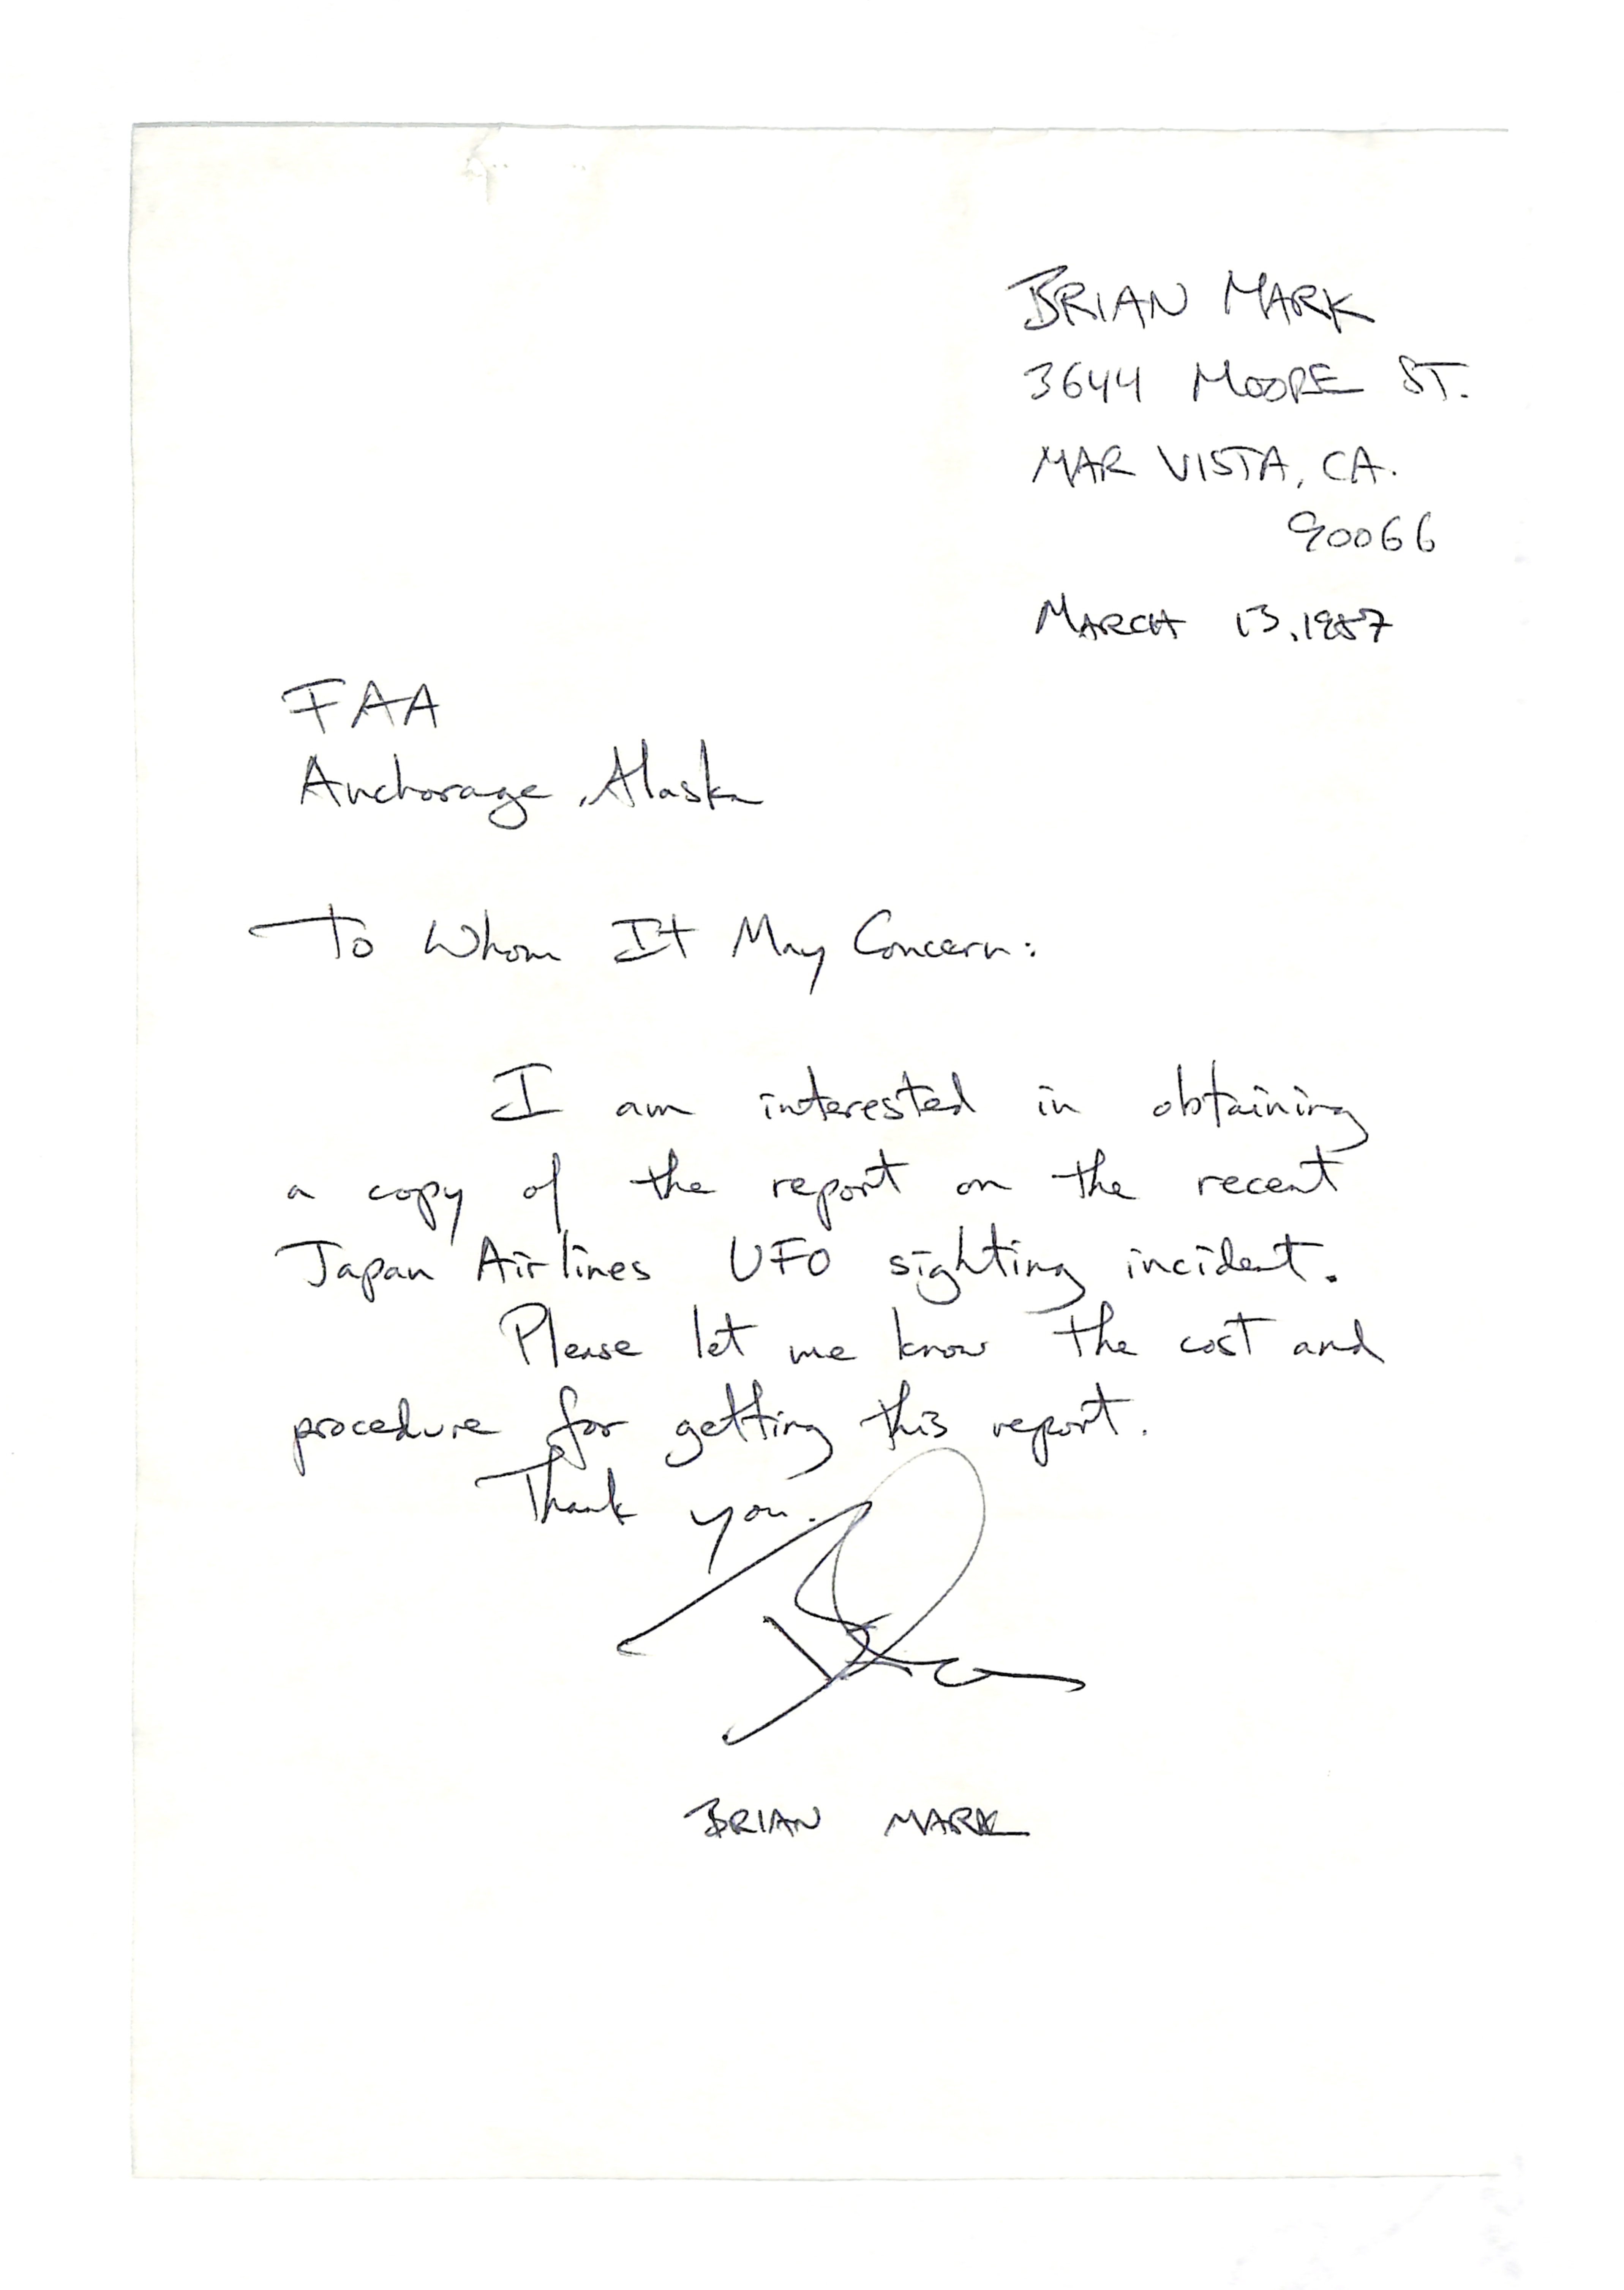 BRIAN MARK
3644 MOORE ST.
MAR VISTA, CA.
90066
MARCH 13, 1987
FAA
Anchorage, Alaska
To Whom It May Concern:
I am interested in obtaining
a copy of the report on the recent
Japan Airlines UFO sighting incident.
Please let me know the cost and
procedure for getting this report.
Thank you.
BRIAN MARK